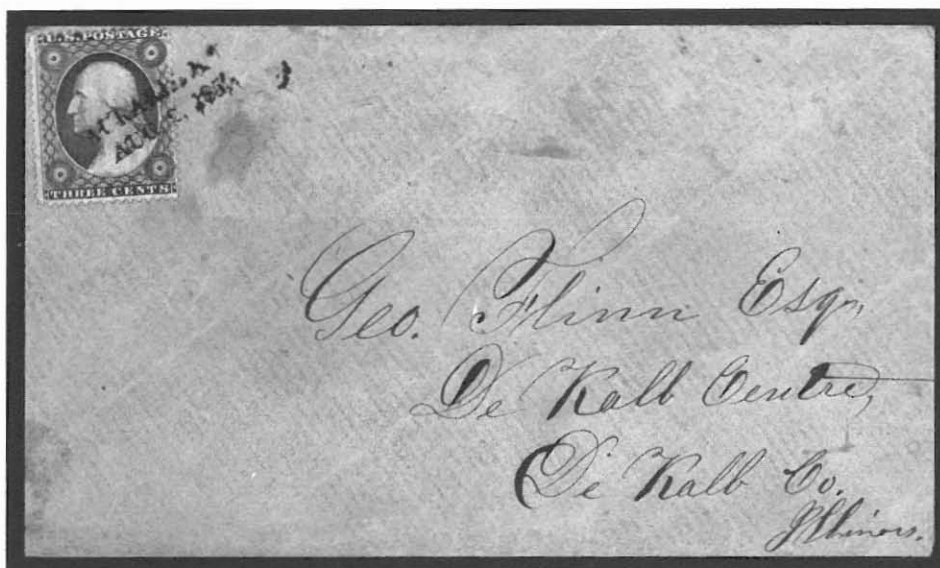 U.S. POSTAGE
THREE CENTS
Geo. Flinn Esq,
De Kalb Centre,
De Kalb Co.
Illinois.